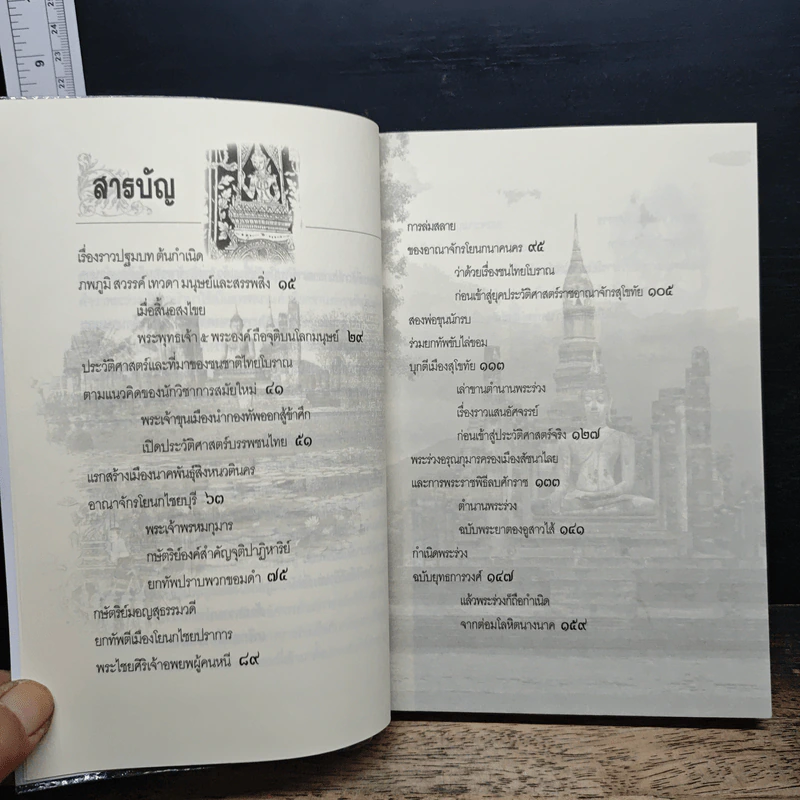 สารบัญ
เรื่องราวปฐมบท ต้นกำเนิด
ภพภูมิ สวรรค์ เทวดา มนุษย์และสรรพสิ่ง ๑๕
เมื่อสิ้นอสงไขย
พระพุทธเจ้า ๕ พระองค์ ถือจุติบนโลกมนุษย์ ๒๙
ประวัติศาสตร์และที่มาของชนชาติไทยโบราณ
ตามแนวคิดของนักวิชาการสมัยใหม่ ๔๑
พระเจ้าขุนเมืองนำกองทัพออกสู้ข้าศึก
เปิดประวัติศาสตร์บรรพชนไทย ๕๑
แรกสร้างเมืองนาคพันธุ์สิงหนวตินคร
อาณาจักรโยนกไชยบุรี ๖๓
พระเจ้าพรหมกุมาร
กษัตริย์องค์สำคัญจุติปาฏิหาริย์
ยกทัพปราบพวกขอมดำ ๗๕
กษัตริย์มอญสุธรรมวดี
ยกทัพตีเมืองโยนกไชยปราการ
พระไชยศิริเจ้าอพยพผู้คนหนี ๘๙
การล่มสลาย
ของอาณาจักรโยนกนาคนคร ๙๕
ว่าด้วยเรื่องชนไทยโบราณ
ก่อนเข้าสู่ยุคประวัติศาสตร์ราชอาณาจักรสุโขทัย ๑๐๕
สองพ่อขุนนักรบ
ร่วมยกทัพขับไล่ขอม
บุกตีเมืองสุโขทัย ๑๑๓
เล่าขานตำนานพระร่วง
เรื่องราวแสนอัศจรรย์
ก่อนเข้าสู่ประวัติศาสตร์จริง ๑๒๗
พระร่วงอรุณกุมารครองเมืองสัชนาไลย
และการพระราชพิธีลบศักราช ๑๓๓
ตำนานพระร่วง
ฉบับพระยาตองอูสาวไส้ ๑๔๑
กำเนิดพระร่วง
ฉบับยุทธการวงศ์ ๑๔๗
แล้วพระร่วงก็ถือกำเนิด
จากต่อมโลหิตนางนาค ๑๕๙
9